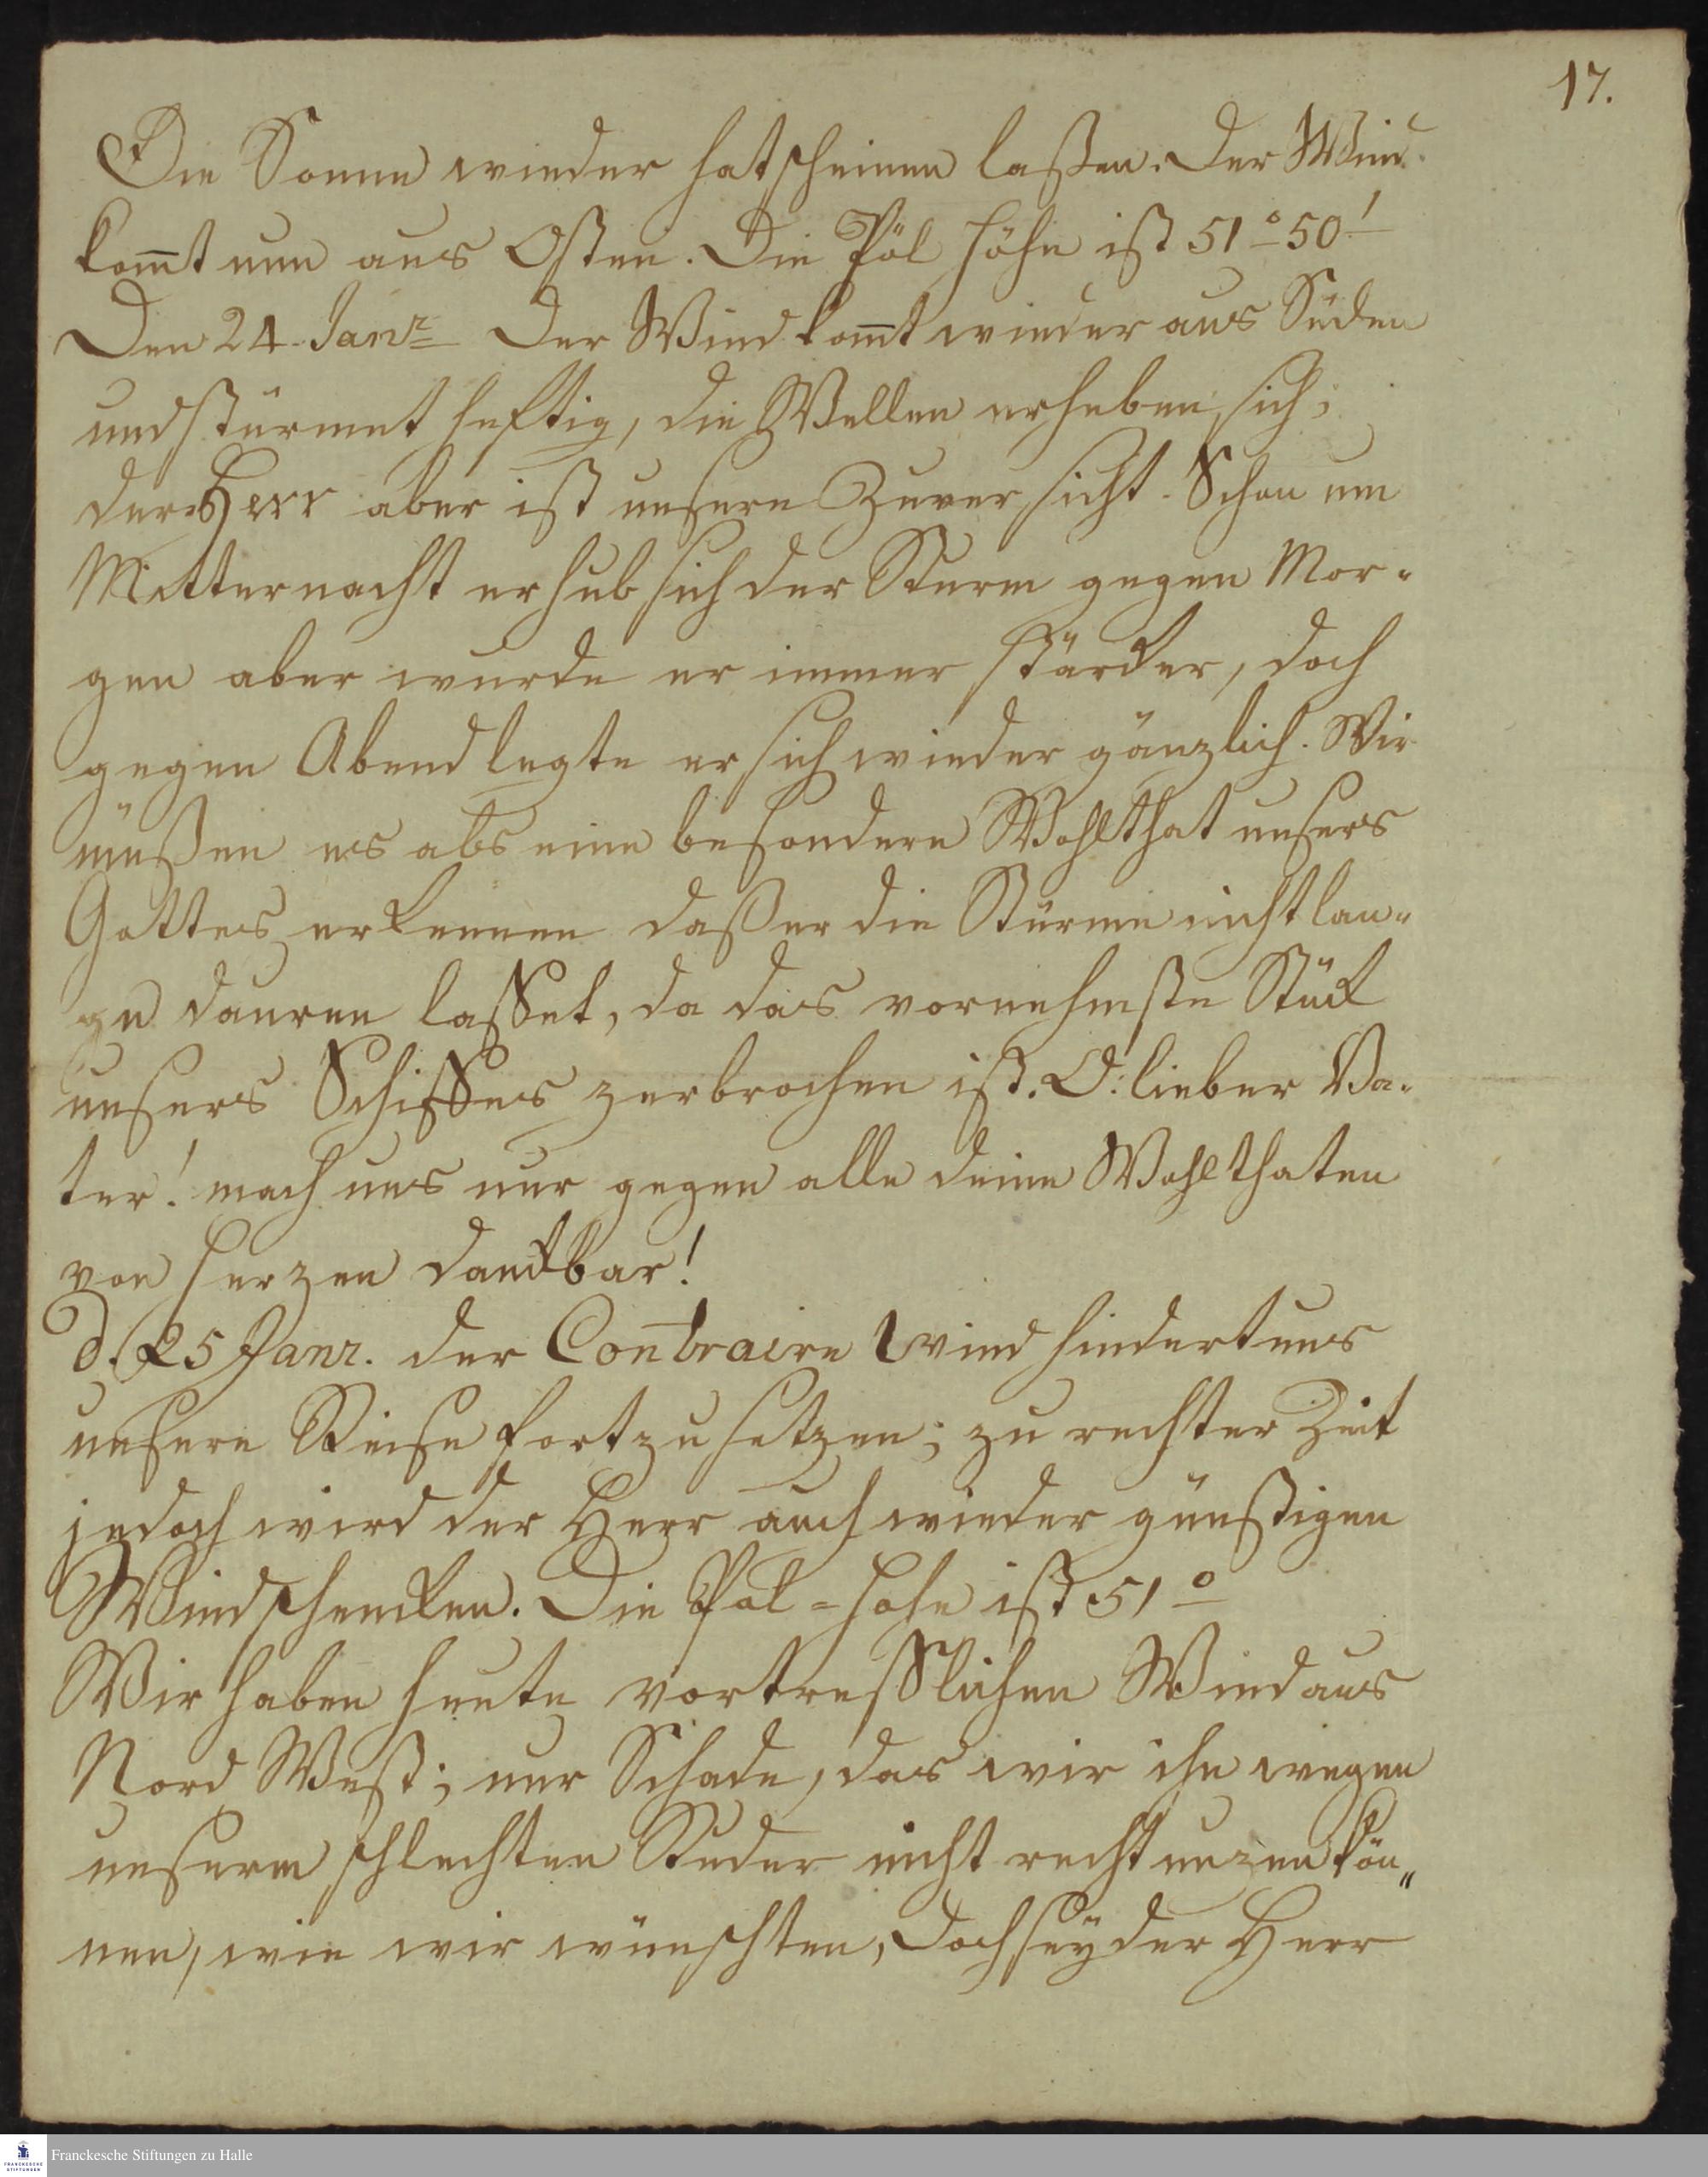 17.
Die Sonne wieder hat scheinen laßen. Der Wind
kom̅t nun aus Osten. Die Pol Höhe ist 51° 50'
Den 24. Janr. Der Wind kom̅t wieder aus Süden
und stürmet heftig, die Wellen erheben sich;
der Herr aber ist unsere Zuversicht. Schon um
Mitternacht erhub sich der Sturm gegen Mor-
gen aber wurde er immer stärcker, doch
gegen Abend legte er sich wieder gänzlich. Wir
müßen es als eine besondere Wohlthat unsers
Gottes erkennen daß er die Stürme nicht lan-
ge dauren lasset, da das vornehmste Stück
unsers Schiffes zerbrochen ist. O! lieber Va-
ter! mach uns nur gegen alle deine Wohlthaten
von Herzen danckbar!
d. 25 Janr. der Contraire Wind hindert uns
unsere Reise fortzusetzen; zu rechter Zeit
jedoch wird der Herr auch wieder günstigen
Wind schencken. Die Pol-Höhe ist 51°
Wir haben heute vortrefflichen Wind aus
Nord West; nur Schade, das wir ihn wegen
unserm schlechten Ruder nicht recht nuzen kön„
nen, wie wir wünschten, doch seÿ der Herr
Franckesche Stiftungen zu Halle
FRANCKESCHE
STIFTUNGEN